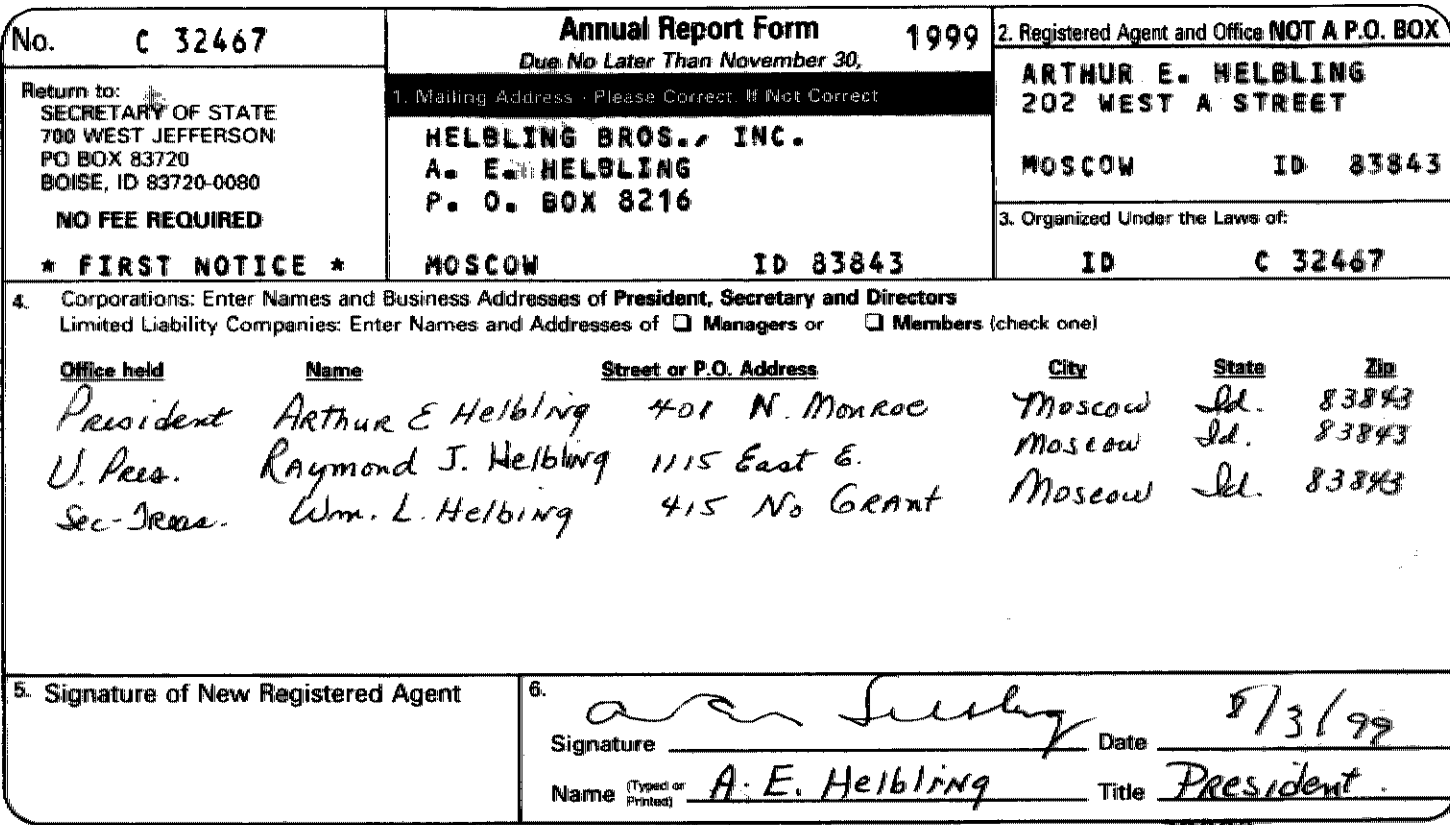 No. C 32467
Return to:
SECRETARY OF STATE
700 WEST JEFFERSON
PO BOX 83720
BOISE, ID 83720-0080
NO FEE REQUIRED
* FIRST NOTICE *
Annual Report Form 1999
Due No Later Than November 30,
1. Mailing Address - Please Correct, If Not Correct
HELBLING BROS., INC.
A. E. HELBLING
P. O. BOX 8216
MOSCOW ID 83843
2. Registered Agent and Office NOT A P.O. BOX
ARTHUR E. HELBLING
202 WEST A STREET
MOSCOW ID 83843
3. Organized Under the Laws of:
ID C 32467
4. Corporations: Enter Names and Business Addresses of President, Secretary and Directors
Limited Liability Companies: Enter Names and Addresses of ❑ Managers or ❑ Members (check one)
Office held Name Street or P.O. Address City State Zip
President Arthur E Helbling 401 N. Monroe Moscow Id. 83843
V. Pres. Raymond J. Helbling 1115 East E. Moscow Id. 83843
Sec-Treas. Wm. L. Helbing 415 No Grant Moscow Id. 83843
5. Signature of New Registered Agent
6.
Signature Date 8/3/99
Name (Typed or Printed) A. E. Helbling Title President.